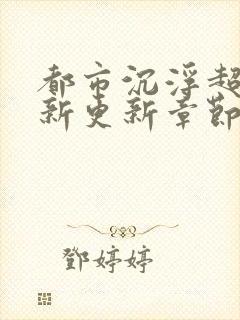 都市沉浮超
新更新章節
鄧婷婷